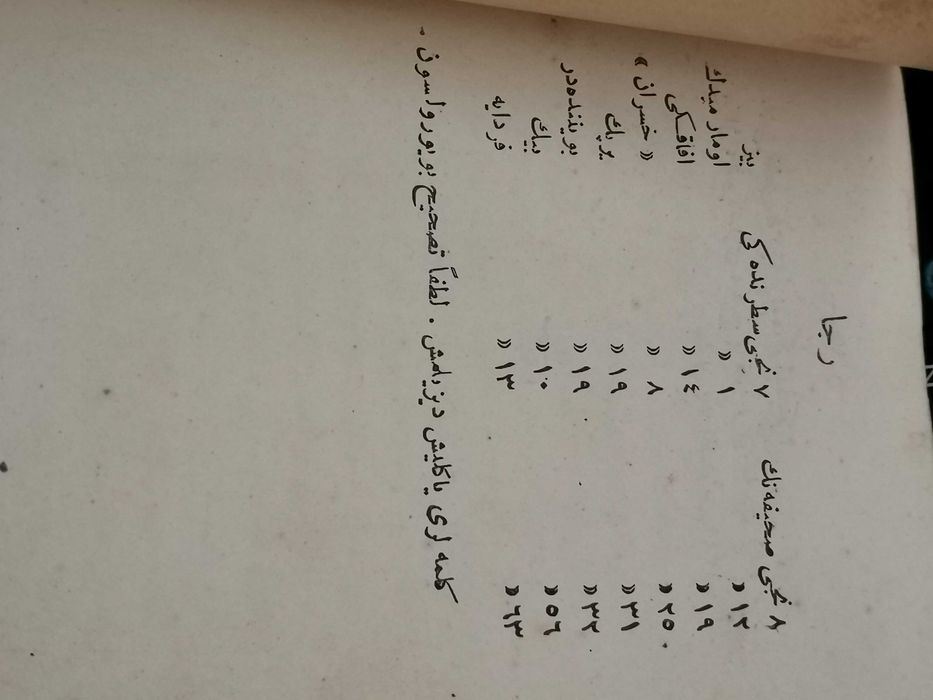 رجا
٨ نجی صحیفه‌نك ٧ نجی سطرنده‌كی بیز
١٢ » ١ » اومار میدك
١٩ » ١٤ » افاقكی
٢٥ » ٨ » « خسران »
٣١ » ١٩ » یریك
٣٢ » ١٩ » بویننده‌در
٥٦ » ١٠ » بیك
٦٣ » ١٣ » فردایه
كلمه لری یاكلیش دیزیلمش . لطفاً تصحیح بویورولسون .